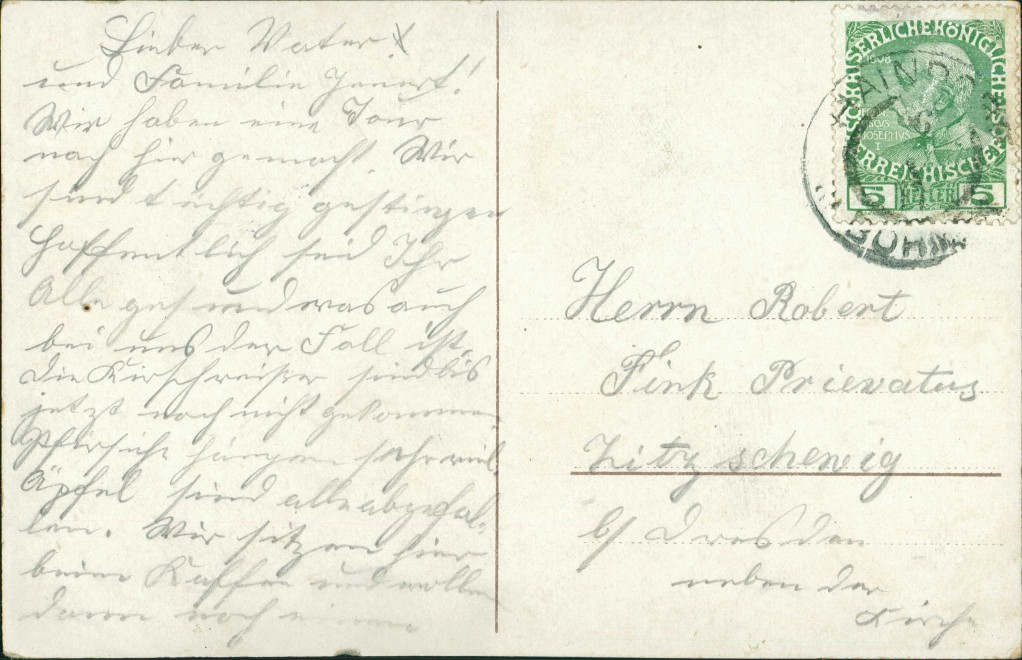 Lieber Vater
und Familie
Wir haben eine Tour
nach hier gemacht Wir
sind tüchtig gestiegen
Hoffentlich seid Ihr
Alle gesund was auch
bei uns der Fall ist,
die sind bis
jetzt noch nicht gekommen
Pfirsiche hängen sehr viel
Äpfel sind alle abgefal-
len. Wir sitzen hier
beim Kaffee und wollen
dann noch einen
KAISERLICHE KÖNIGLICHE ÖSTERREICHISCHE POST
1908
JOSEPHVS I
5 HELLER 5
HAINDORF
BÖHMEN
Herrn Robert
Fink Prievatus
Zitzschewig
b/ Dresden
neben der
Kirche